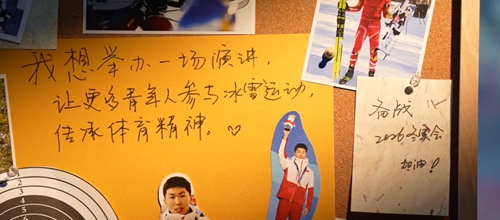 我想举办一场演讲，
让更多青年人参与冰雪运动，
传承体育精神。♡
备战
2026冬奥会
加油！